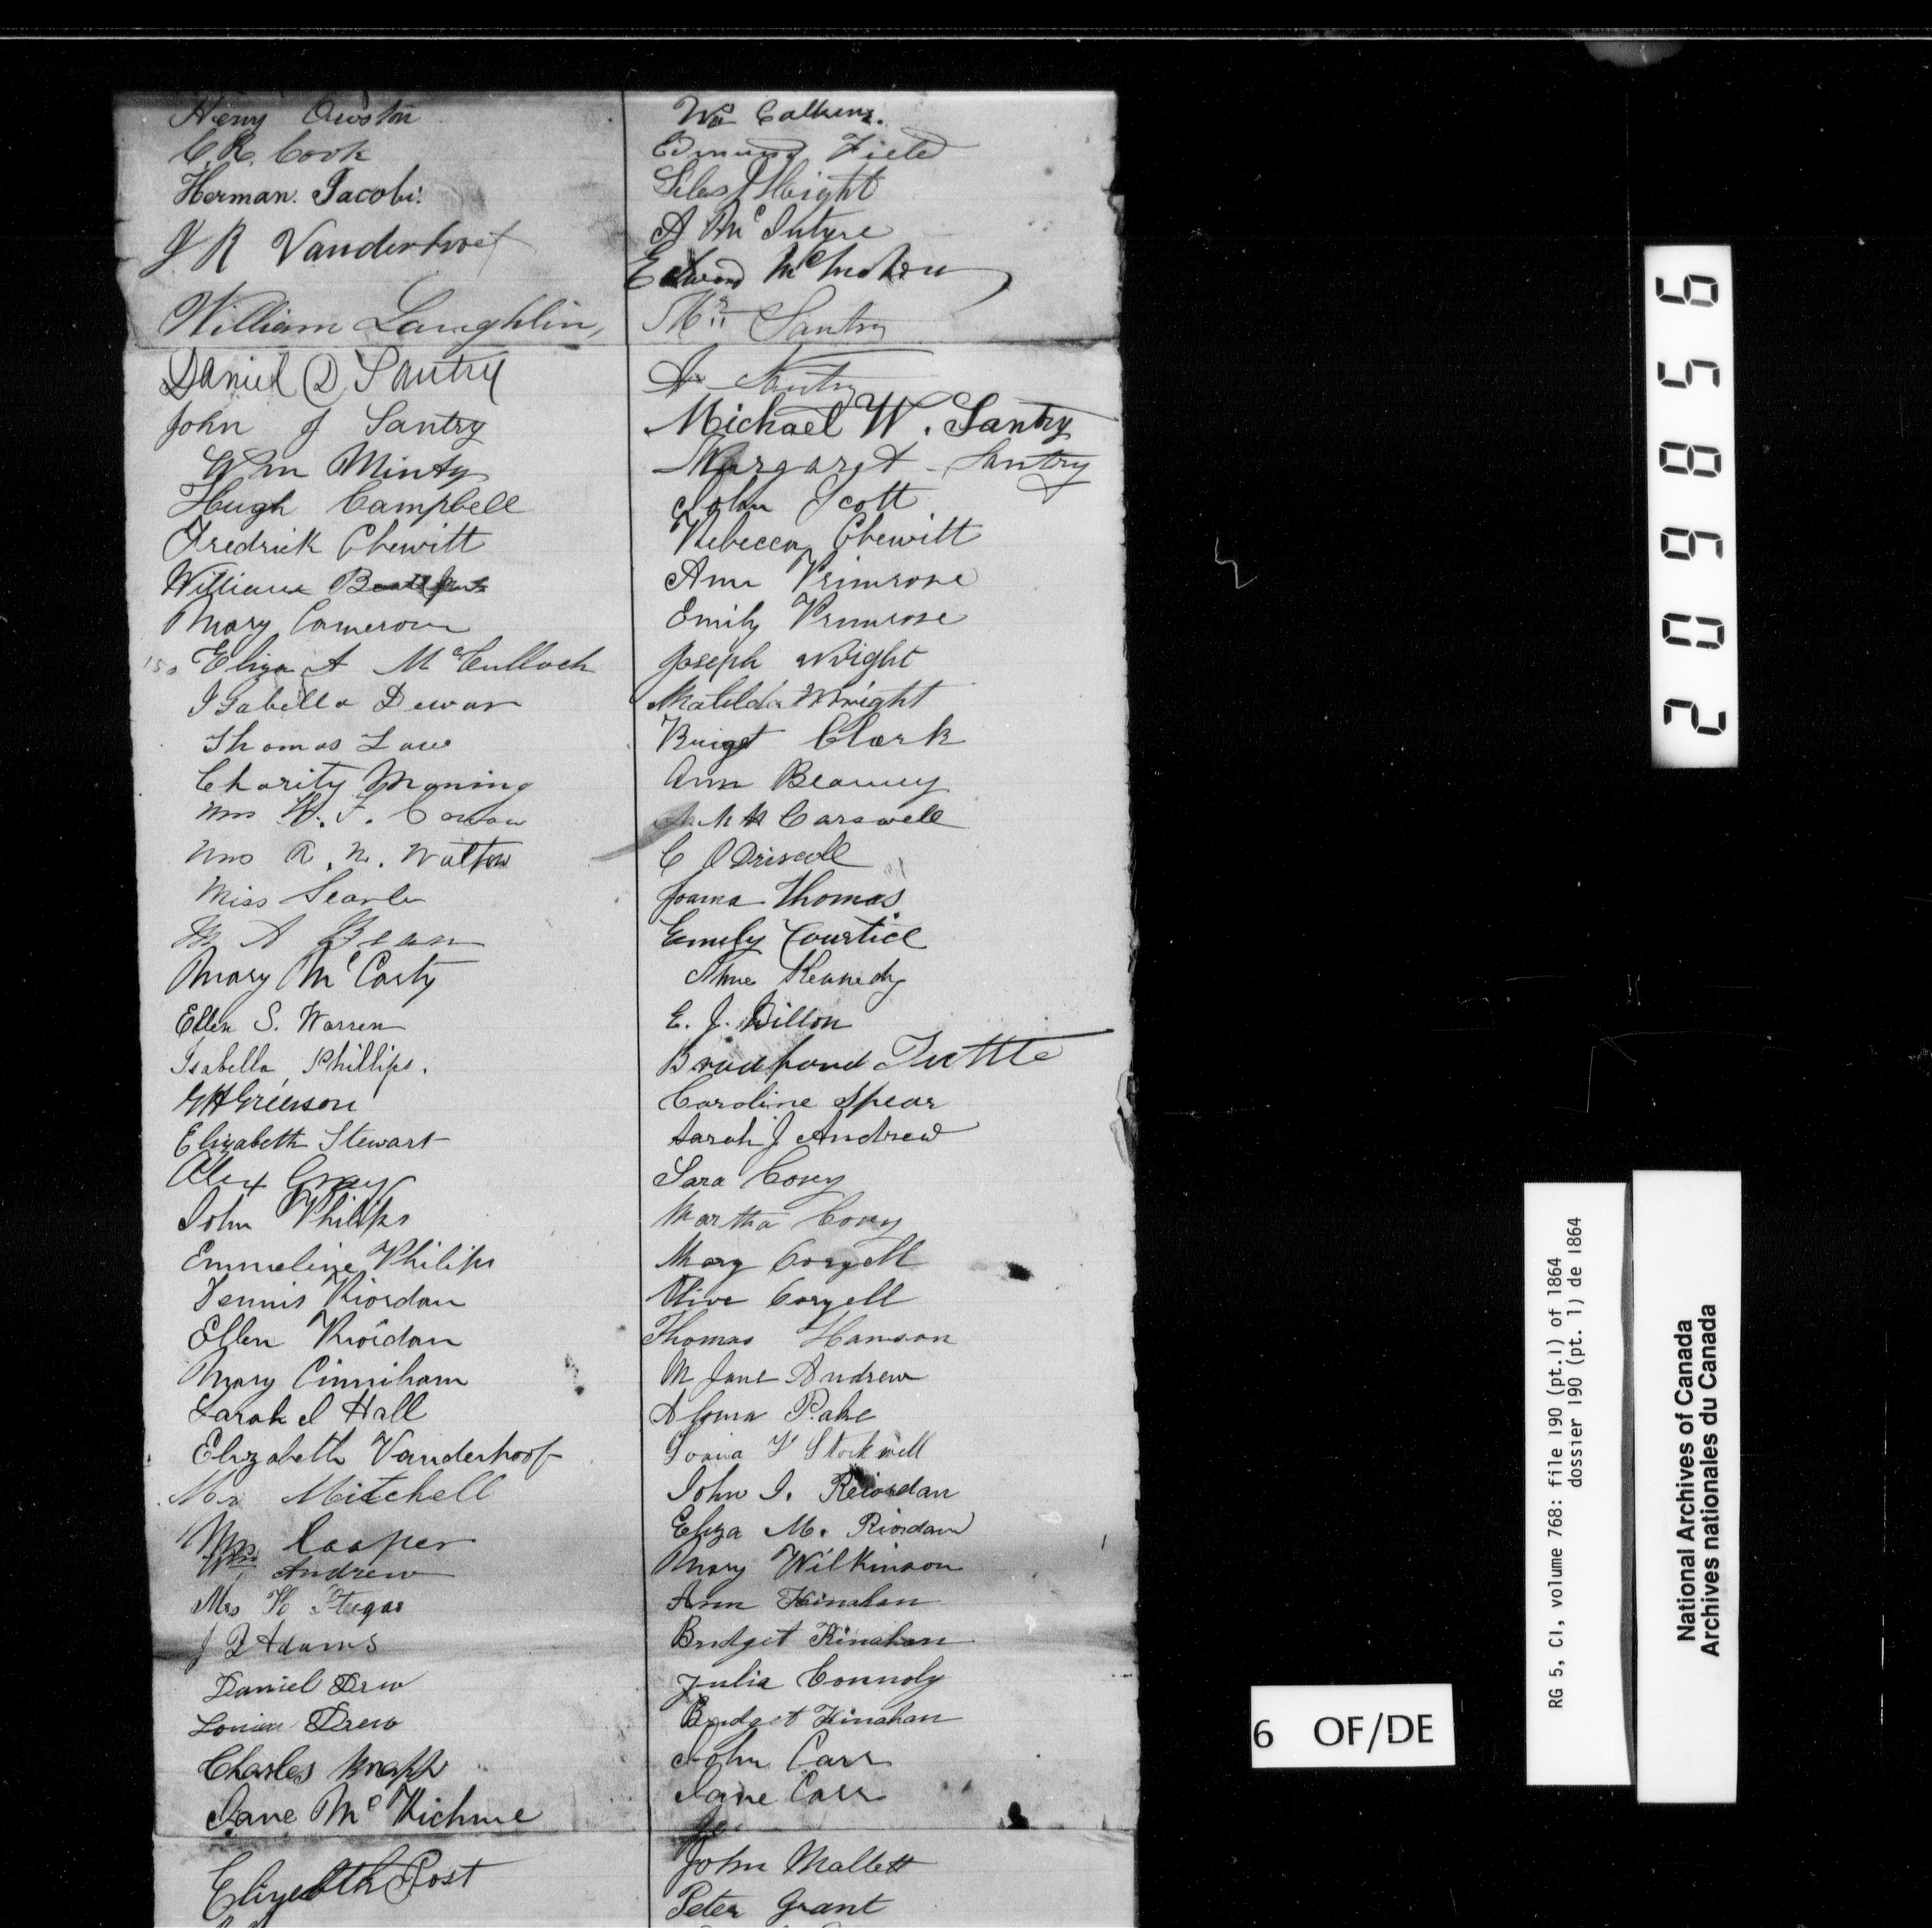 Henry Owston
C. R. Cook
Herman Jacobi
J R Vanderhoof
William Laughlin,
Daniel D Santry
John J Santry
Wm Minty
Hugh Campbell
Fredrick Chewitt
William
Mary Cameron
150 Eliza A McCulloch
Isabella Dewar
Thomas Law
Charity Moning
Mrs W. F. Cowan
Mrs R. N. Walton
Miss Searle
M A Bean
Mary McCarty
Ellen S. Warren
Isabella Phillips.
Grierson
Elizabeth Stewart
Alex Gray
John Philips
Emmeline Philips
Dennis Riordan
Ellen Riordan
Mary Cinniham
Sarah J Hall
Elizabeth Vanderhoof
Mrs Mitchell
Mrs Cooper
Andrew
Mrs
Adams
Daniel Drew
Louisa Drew
Charles Knapp
Jane Mc
Elizebeth Post
Wm Calkins.
Edmund Field
Silas Hight
A McIntyre
Edward
Mrs Santry
Santry
Michael W. Santry
Margaret Santry
John Scott
Rebecca Chewitt
Ann Primrose
Emily Primrose
Joseph Wright
Matilda Wright
Briget Clark
Ann
Carswell
C O Driscoll
Joanna Thomas
Emily Courtice
Anne Kennedy
E. J. Dillon
Bradford Tuttle
Caroline Spear
Sarah J Andrew
Sara Cory
Martha Cory
Mary Coryell
Olive Coryell
Thomas Hanson
M Jane Andrew
Stockwell
John J. Reiordan
Eliza M. Riordan
Mary Wilkinson
Ann Kinahan
Bridget Kinahan
Julia Connoly
Bridget Kinahan
John Carr
Jane Carr
John Mallett
Peter Grant
209856
6 OF/DE
RG 5, C1, volume 768: file 190 (pt.1) of 1864
dossier 190 (pt. 1) de 1864
National Archives of Canada
Archives nationales du Canada